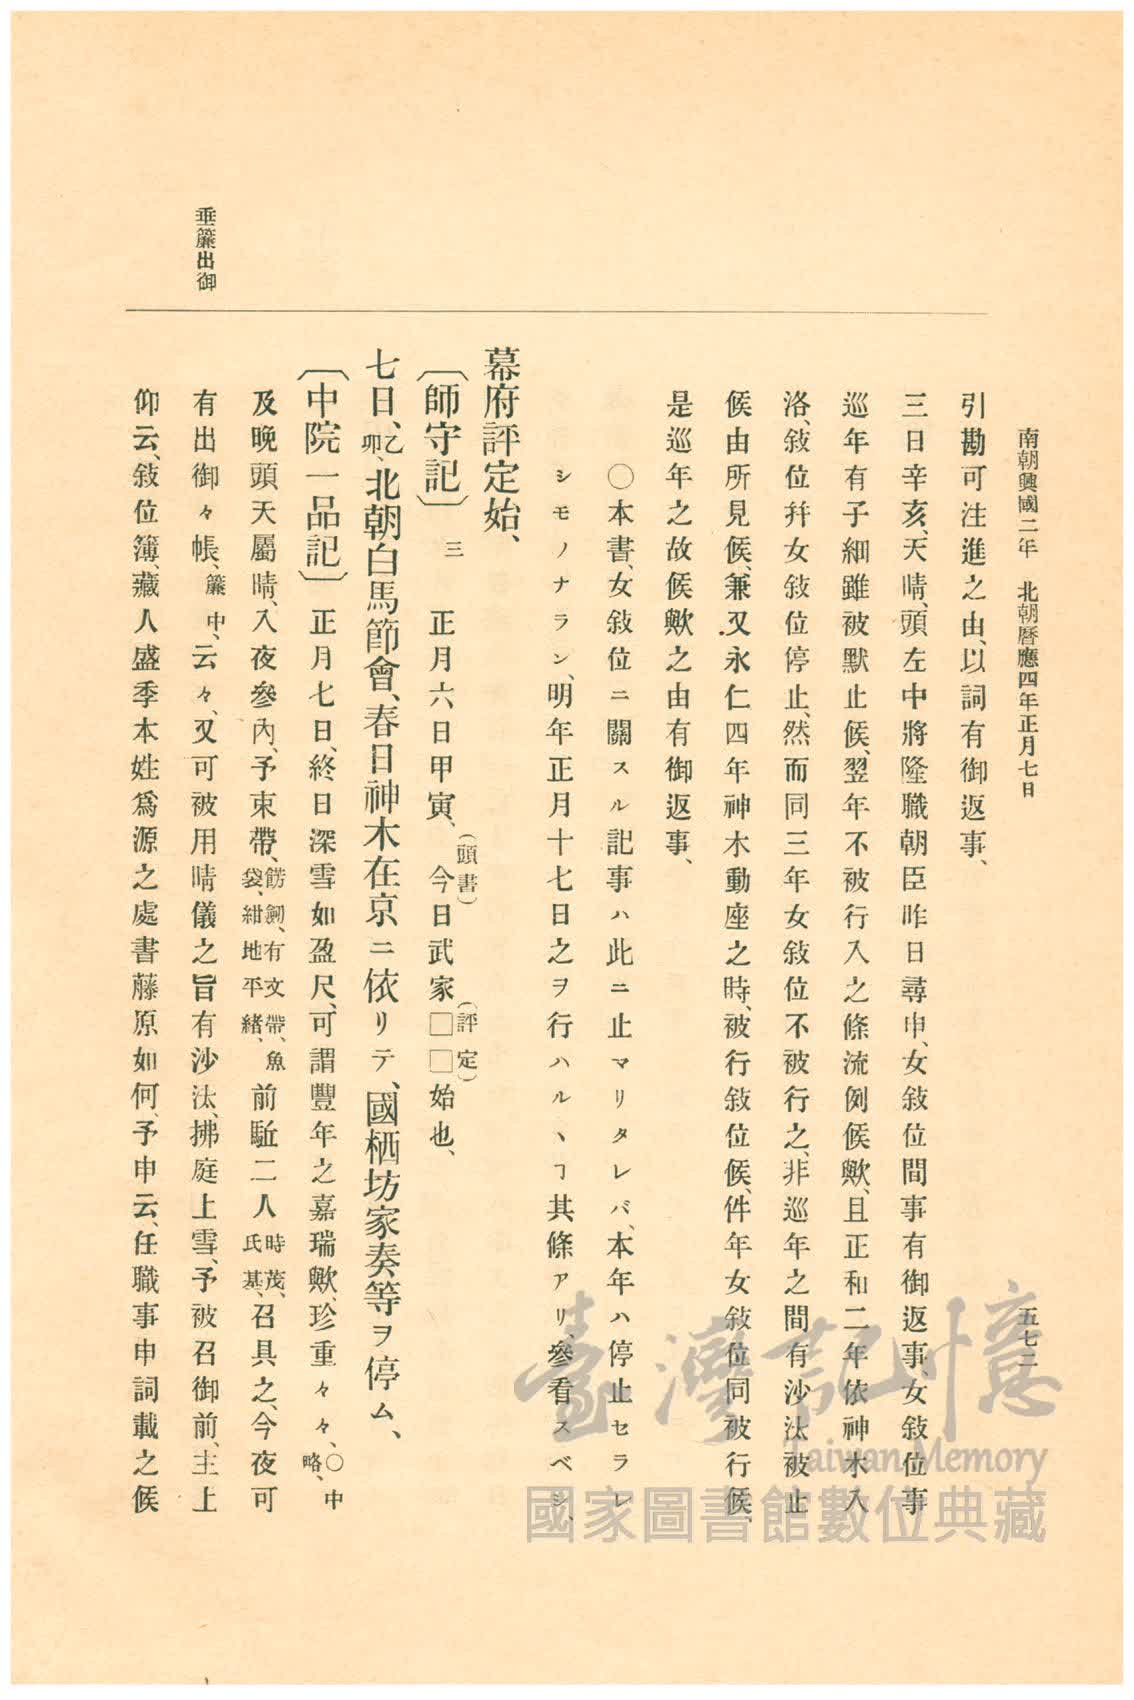 南朝興國二年　北朝曆應四年正月七日
五七二
引勘可注進之由、以詞有御返事、
三日辛亥、天晴、頭左中將隆職朝臣昨日尋申、女敍位間事有御返事、女敍位事
巡年有子細雖被默止候、翌年不被行入之條流例候歟、且正和二年依神木入
洛、敍位幷女敍位停止、然而同三年女敍位不被行之、非巡年之間有沙汰被止
候由所見候、兼又永仁四年神木動座之時、被行敍位候、件年女敍位同被行候、
是巡年之故候歟之由有御返事、
〇本書、女敍位ニ關スル記事ハ此ニ止マリタレバ、本年ハ停止セラレ
シモノナラン、明年正月十七日之ヲ行ハルヽヿ其條アリ、參看スベシ、
幕府評定始、
〔師守記〕三　正月六日甲寅、(頭書)今日武家□□(評定)始也、
七日、乙卯、北朝白馬節會、春日神木在京ニ依リテ、國栖坊家奏等ヲ停ム、
〔中院一品記〕正月七日、終日深雪如盈尺、可謂豐年之嘉瑞歟、珍重々々、〇中略、
及晚頭天屬晴、入夜參內、予束帶、餝劒、有文帶、魚袋、紺地平緖、前駈二人時茂、氏基、召具之、今夜可
垂簾出御
有出御々帳、簾中、云々、又可被用晴儀之旨有沙汰、拂庭上雪、予被召御前、主上
仰云、敍位簿、藏人盛季本姓爲源之處書藤原如何、予申云、任職事申詞載之候
臺灣記憶
Taiwan Memory
國家圖書館數位典藏